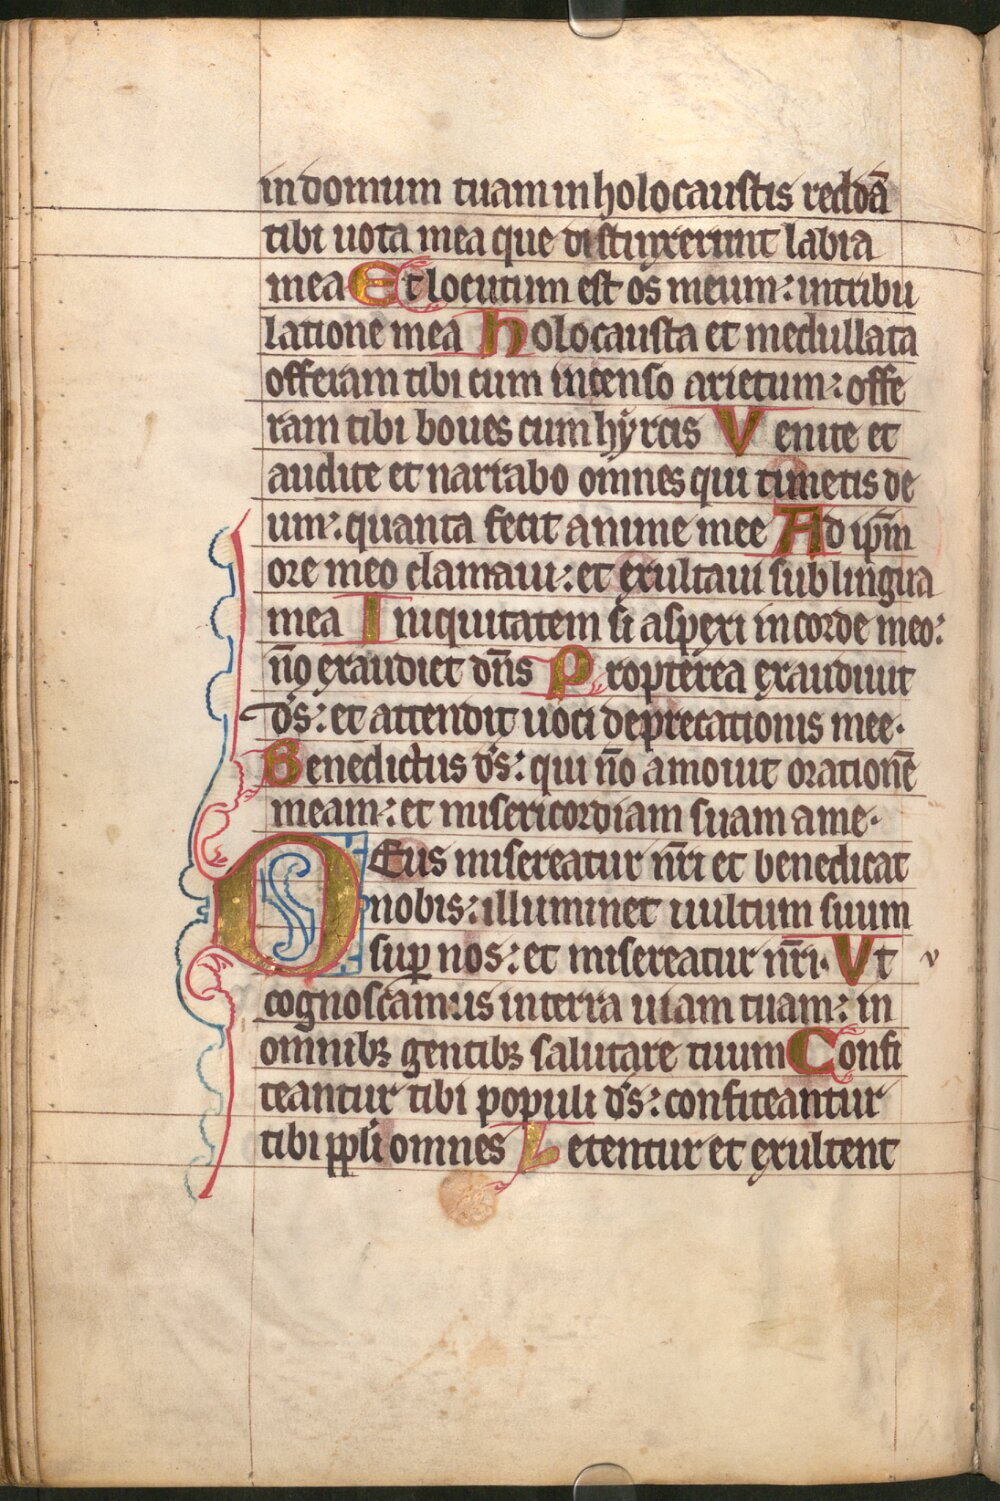 in domum tuam in holocaustis reddā
tibi uota mea que distinxerunt labia
mea Et locutum est os meum: in tribu
latione mea Holocausta et medullata
offeram tibi cum incenso arietum: offe
ram tibi boues cum hẏrcis Venite et
audite et narrabo omnes qui timetis de
um: quanta fecit anime mee Ad ip̄m
ore meo clamaui: et exultaui sub lingua
mea Iniquitatem si aspexi in corde meo:
n̄o exaudiet dn̄s Propterea exaudiuit
d̄s: et attendit uoci deprecationis mee.
Benedictus d̄s: qui n̄o amouit orationē
meam: et misericordiam suam a me.
DEus misereatur nr̄i et benedicat
nobis: illuminet uultum suum
suꝑ nos: et misereatur nr̄i. Vt v
cognoscamus in terra uiam tuam: in
omnibꝫ gentibꝫ salutare tuum Confi
teantur tibi populi d̄s: confiteantur
tibi ppl̄i omnes Letentur et exultent